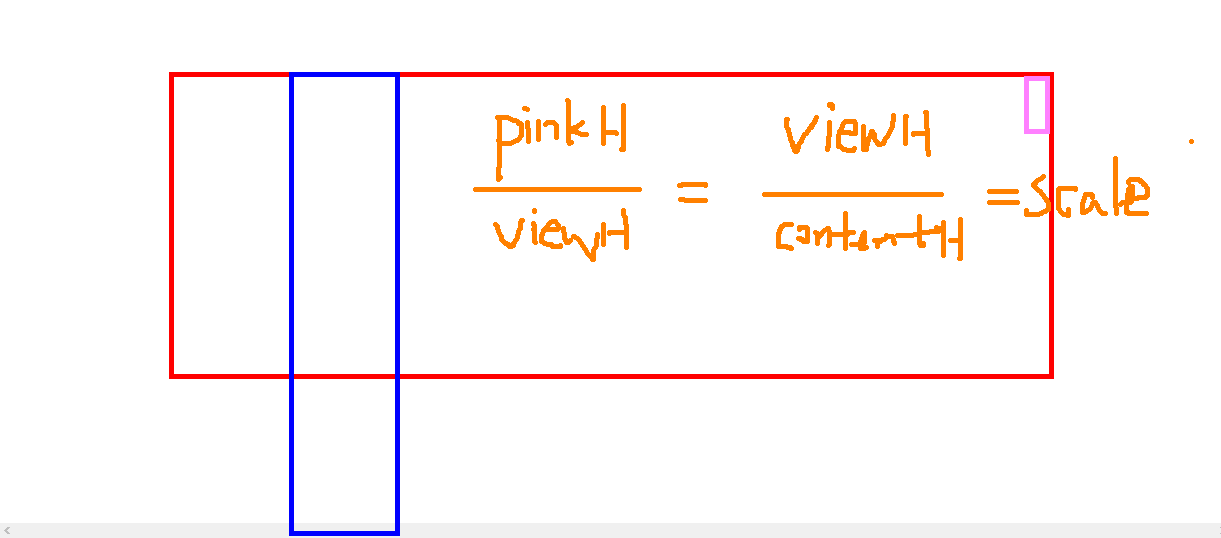 pinkH / viewH = viewH / contentH = scale